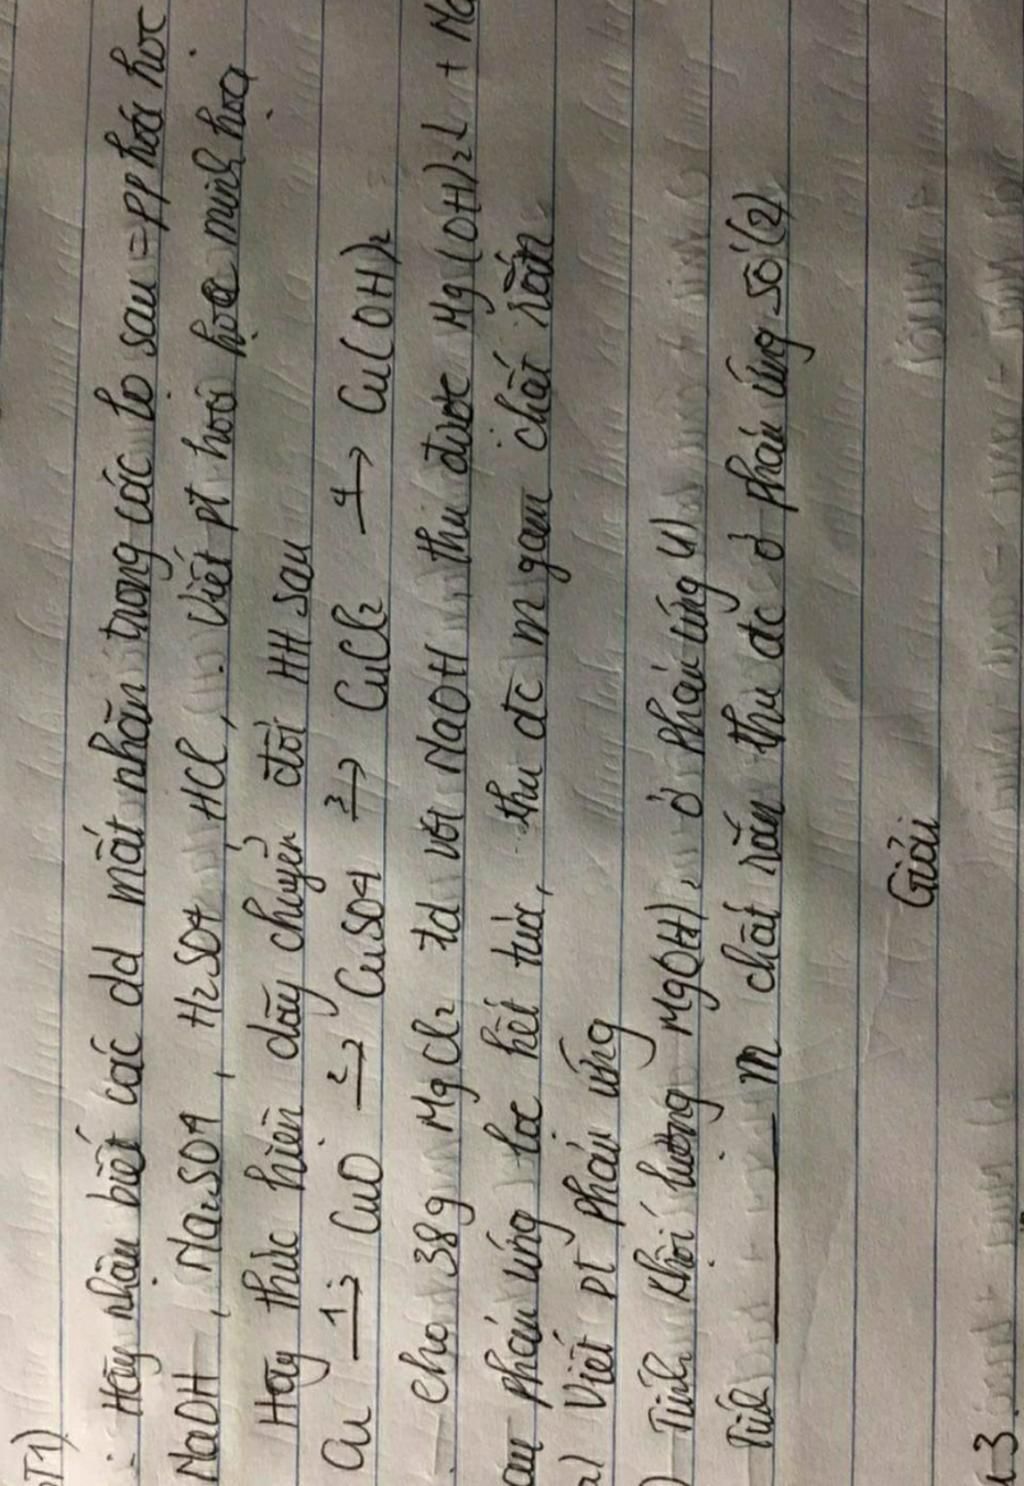 T1)
: Hãy nhận biết các dd mất nhãn trong các lọ sau = PP hoá học
NaOH, Na₂SO4, H₂SO4, HCl,. Viết pt hoá học minh hoạ
Hãy thực hiện dãy chuyển đổi HH sau
Cu 1→ CuO 2→ CuSO4 3→ CuCl₂ 4→ Cu(OH)₂
. Cho 38g MgCl₂ td với NaOH, thu được Mg(OH)₂↓ +
au phản ứng lọc kết tủa, thu đc m gam chất rắn
a) Viết pt phản ứng
) Tính khối lượng MgOH), ở phản ứng (1)
Tính ___ m chất rắn thu đc ở phản ứng số (2)
Giải
3.